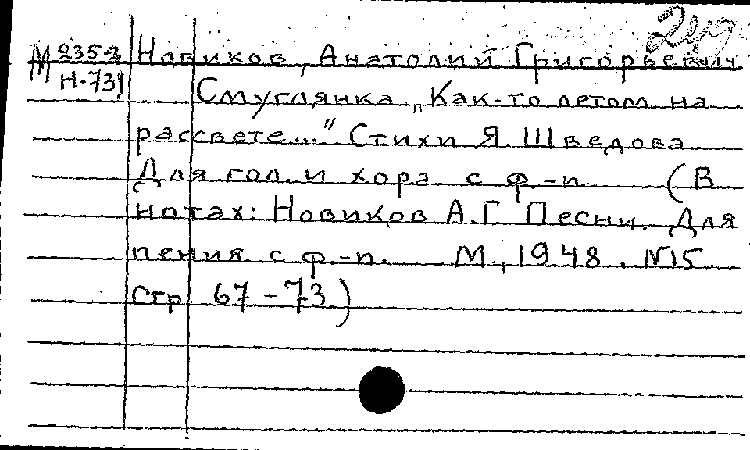 240
М 235-2 Новиков, Анатолий Григорьевич
Н-731 Смуглянка „Как-то летом на
рассвете..." Стихи Я Шведова
Для гол. и хора с ф-п. (В
нотах: Новиков А.Г Песни. Для
пения с ф-п. М, 1948. N15
Стр 67-73)